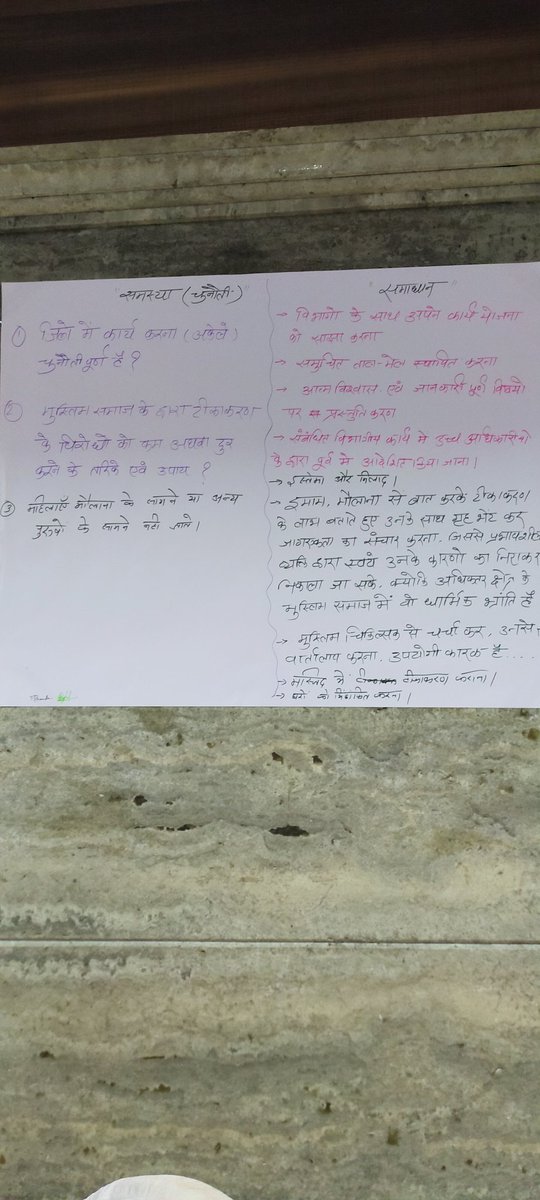 "समस्या (चुनौती)"
① जिले में कार्य करना (अकेले)
चुनौतीपूर्ण है ?
② मुस्लिम समाज के द्वारा टीकाकरण
के विरोधो को कम अथवा दुर
करने के तरिके एवं उपाय ?
③ महिलाएँ मौलाना के सामने या अन्य
पुरुषो के सामने नही आते।
"समाधान"
→ विभागो के साथ अपने कार्य योजना
को साझा करना
→ समुचित ताल-मेल स्थापित करना
→ आत्म विश्वास एवं जानकारी पूर्ण विषयो
पर प्रस्तुति करण
→ संबंधित विभागीय कार्य मे उच्च अधिकारीयो
के द्वारा पूर्व मे आदेशित किया जाना।
→ इस्तेमा और मिलाद।
→ इमाम, मौलाना से बात करके टीकाकरण
के लाभ बताते हुए उनके साथ गृह भेंट कर
जागरुकता का संचार करना, जिससे प्रभावशील
व्यक्ति द्वारा स्वयं उनके कारणो का निराकर
निकाला जा सके, क्योकि अधिकतर क्षेत्र के
मुस्लिम समाज में वो धार्मिक भांति है
→ मुस्लिम चिकित्सक से चर्चा कर, उनसे
वार्तालाप करना, उपयोगी कारक है ....
→ मस्जिद में टीकाकरण कराना।
→ घरो को चिन्हांकित करना।